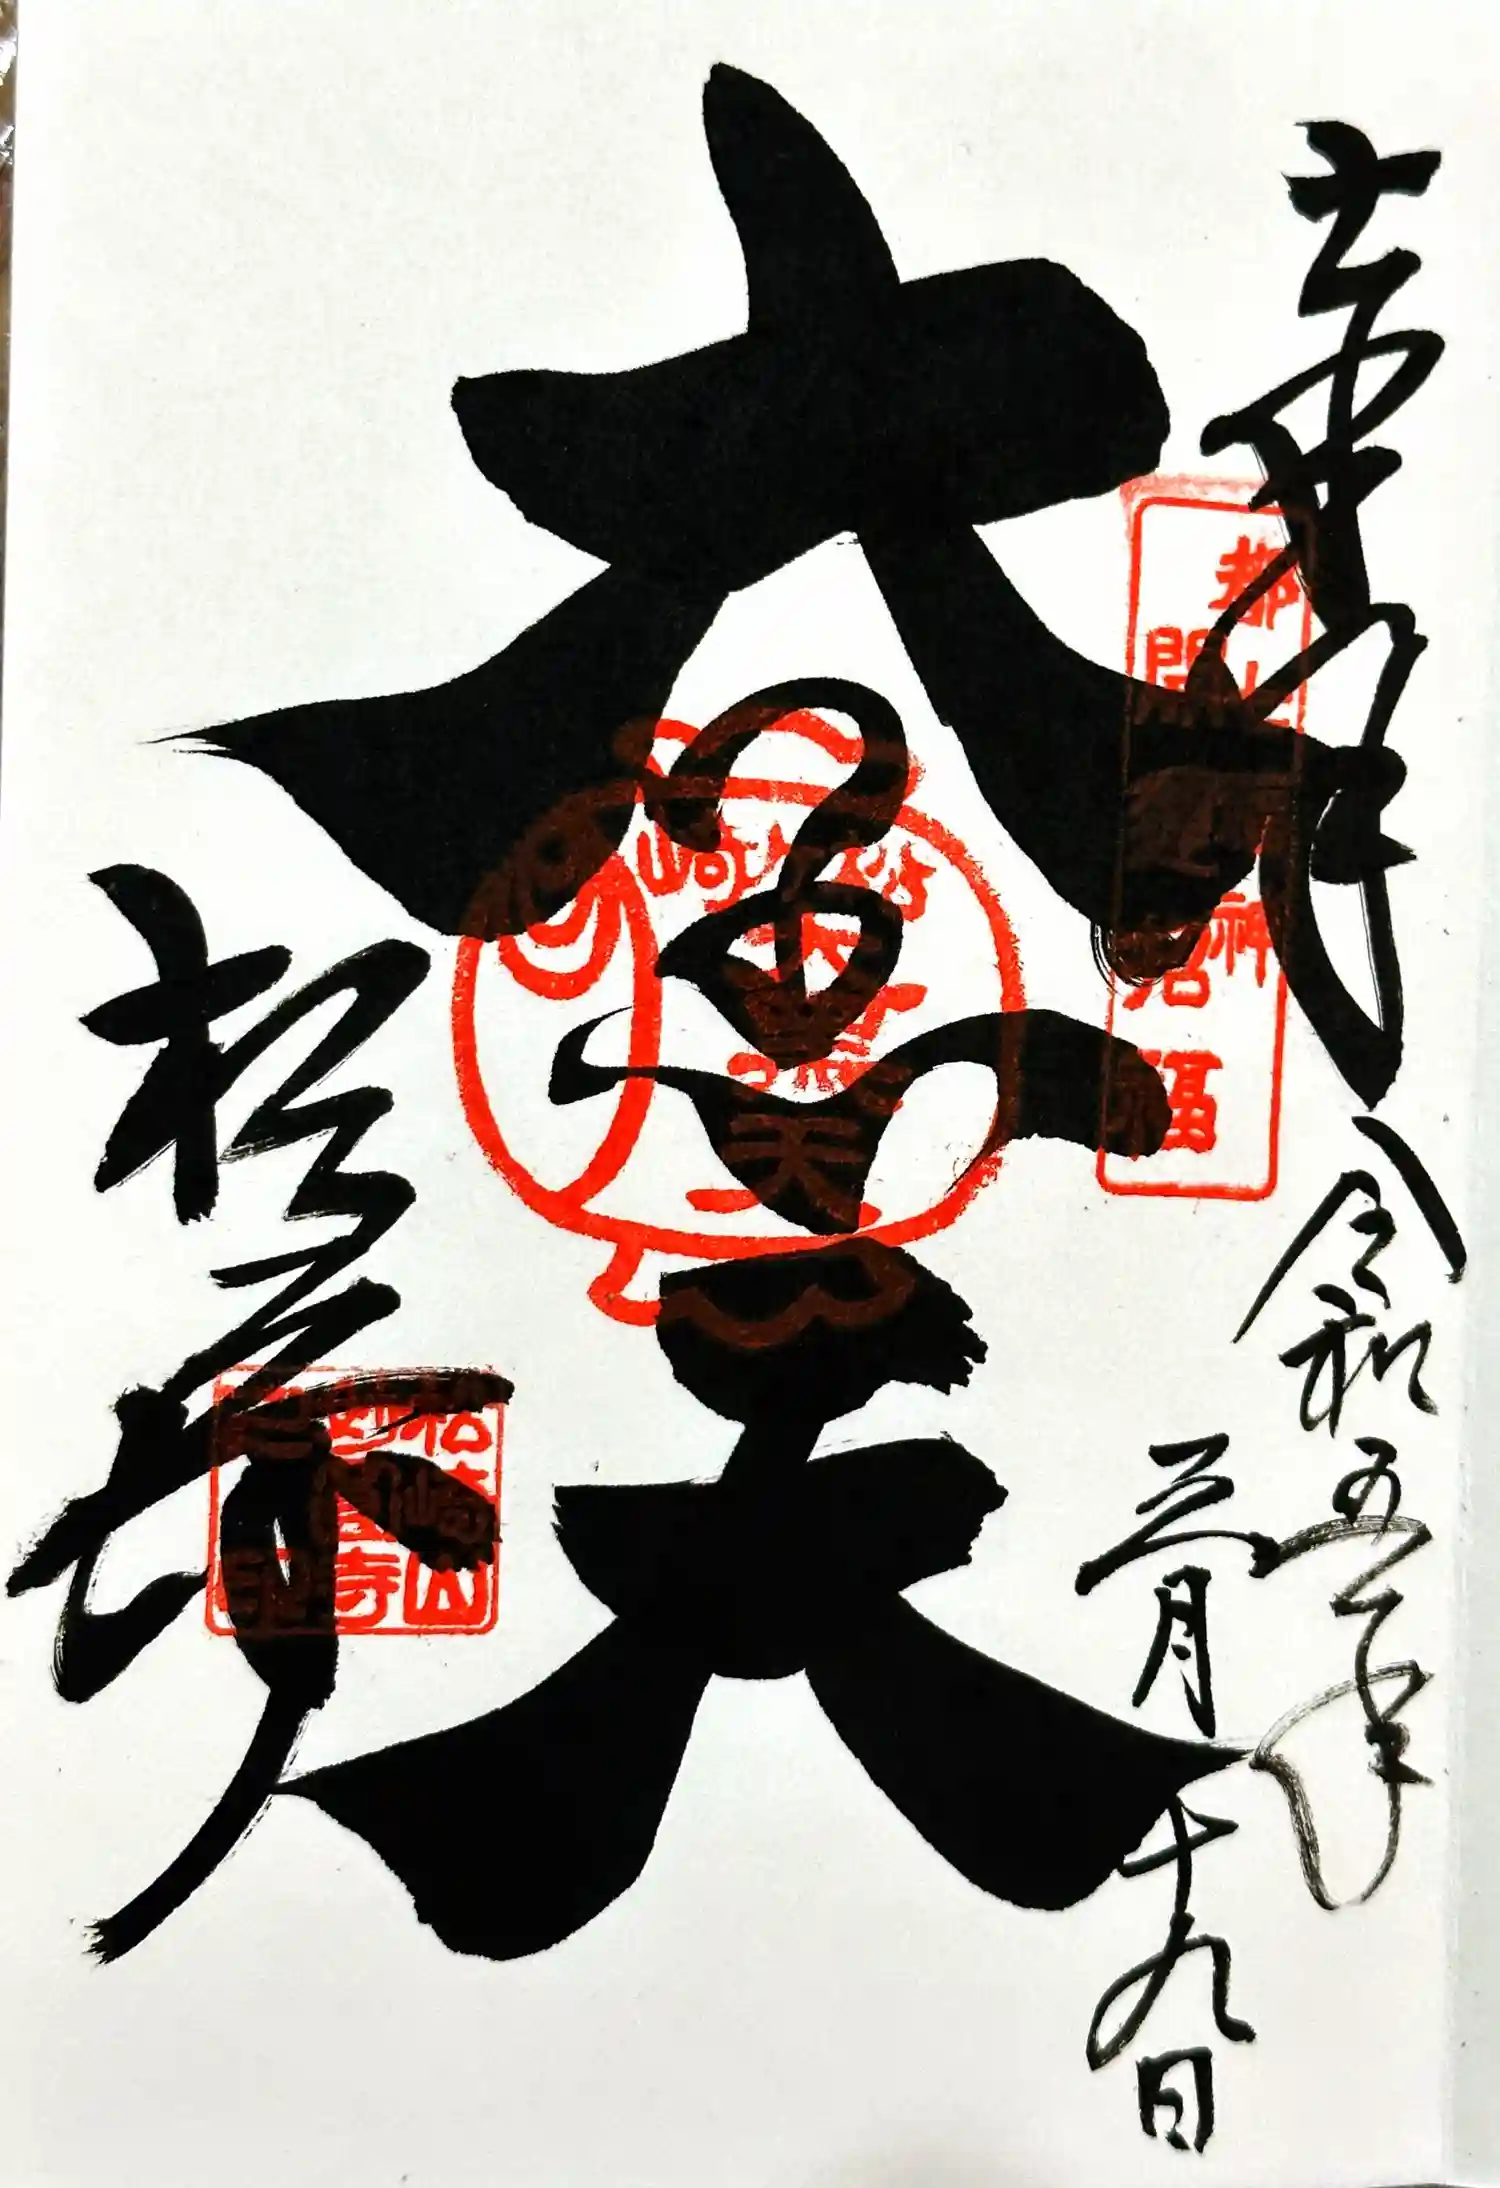 奉拝
令和五年
三月十九日
大黒天
松ヶ崎
都七福神
開運招福
松ヶ崎
大黒天
松崎山
妙円寺
印